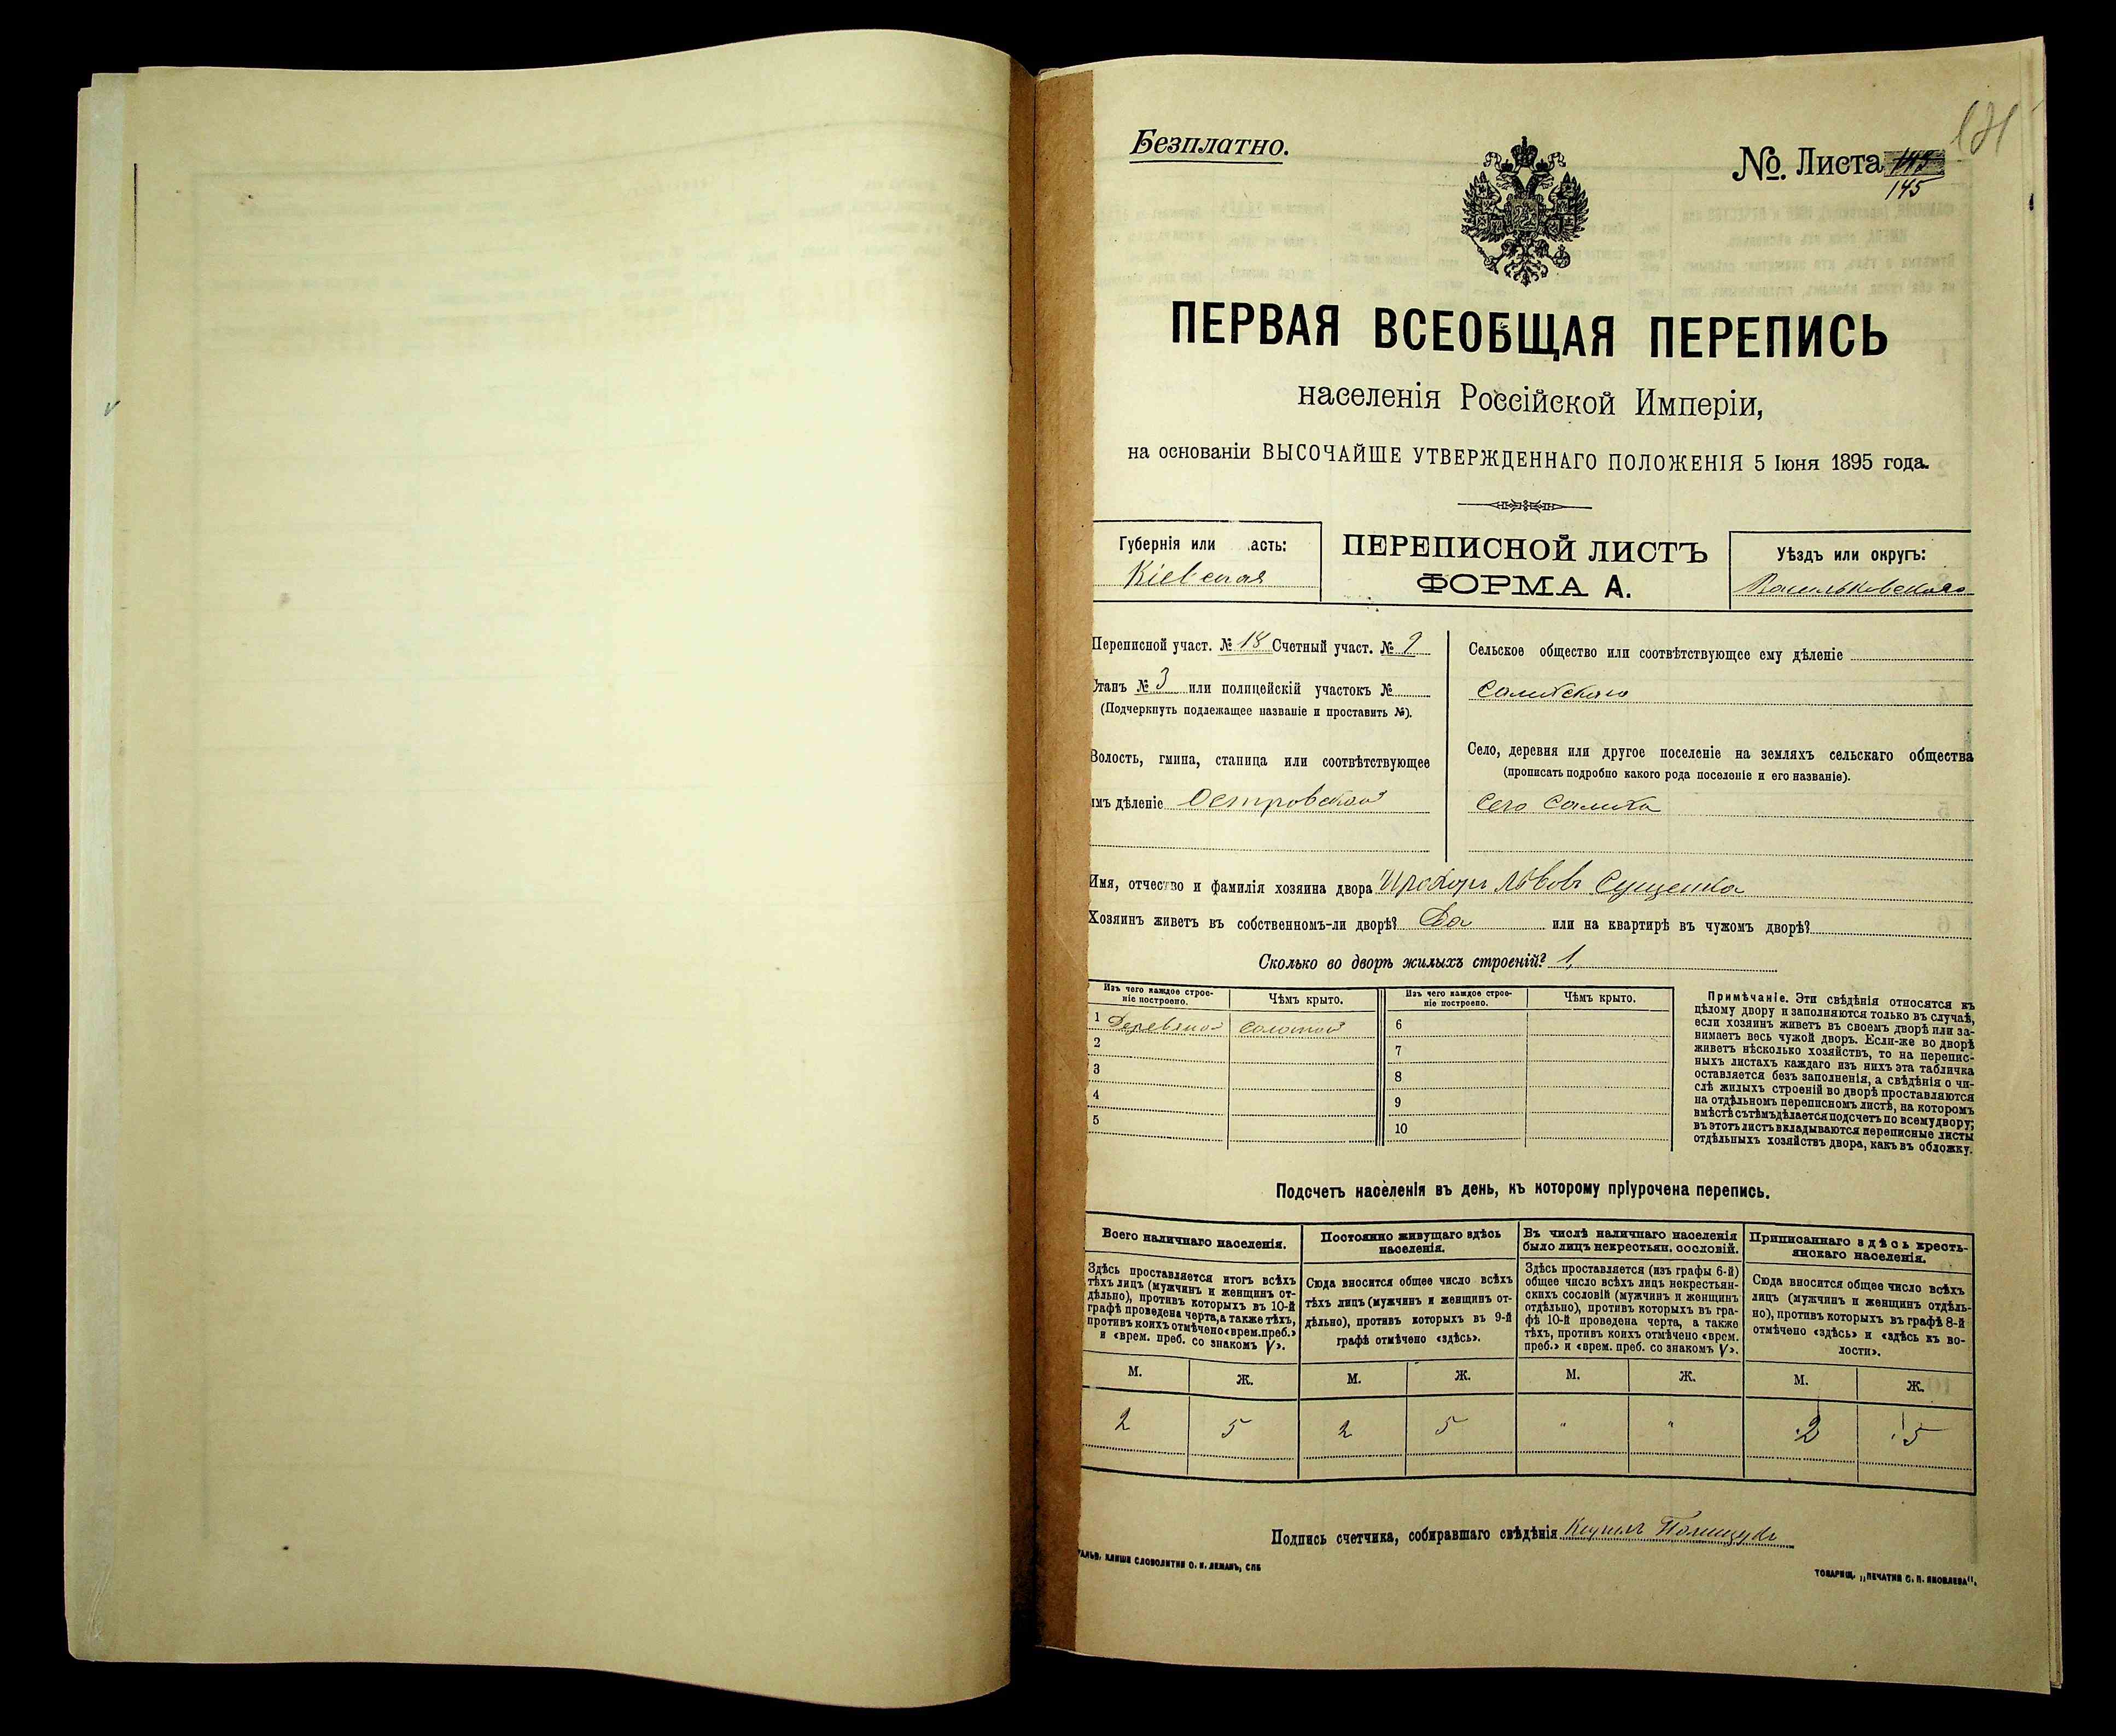 Безплатно.
№. Листа 145
ПЕРВАЯ ВСЕОБЩАЯ ПЕРЕПИСЬ
населенія Россійской Имперіи,
на основаніи ВЫСОЧАЙШЕ УТВЕРЖДЕННАГО ПОЛОЖЕНІЯ 5 Іюня 1895 года.
Губернія или асть:
Кіевская
ПЕРЕПИСНОЙ ЛИСТЪ
ФОРМА А.
Уѣздъ или округъ:
Васильковскаго
Переписной участ. № 18 Счетный участ. № 9
Станъ № 3 или полицейскій участокъ №
(Подчеркнуть подлежащее названіе и проставить №).
Волость, гмина, станица или соотвѣтствующее
имъ дѣленіе Островской
Сельское общество или соотвѣтствующее ему дѣленіе
Салихскаго
Село, деревня или другое поселеніе на земляхъ сельскаго общества
(прописать подробно какого рода поселеніе и его названіе).
Село Салиха
Имя, отчество и фамилія хозяина двора Прохоръ Львовъ Сущенко
Хозяинъ живетъ въ собственномъ-ли дворѣ? Да или на квартирѣ въ чужомъ дворѣ?
Сколько во дворѣ жилыхъ строеній? 1
Изъ чего каждое строе-
ніе построено.
Чѣмъ крыто.
Изъ чего каждое строе-
ніе построено.
Чѣмъ крыто.
1 Деревяной Соломой 6
2 7
3 8
4 9
5 10
Примѣчаніе. Эти свѣдѣнія относятся къ
цѣлому двору и заполняются только въ случаѣ,
если хозяинъ живетъ въ своемъ дворѣ или за-
нимаетъ весь чужой дворъ. Если-же во дворѣ
живетъ нѣсколько хозяйствъ, то на перепис-
ныхъ листахъ каждаго изъ нихъ эта табличка
оставляется безъ заполненія, а свѣдѣнія о чи-
слѣ жилыхъ строеній во дворѣ проставляются
на отдѣльномъ переписномъ листѣ, на которомъ
вмѣстѣ съ тѣмъ дѣлается подсчетъ по всему двору;
въ этотъ листъ вкладываются переписные листы
отдѣльныхъ хозяйствъ двора, какъ въ обложку.
Подсчетъ населенія въ день, къ которому пріурочена перепись.
Всего наличнаго населенія.
Здѣсь проставляется итогъ всѣхъ
тѣхъ лицъ (мужчинъ и женщинъ от-
дѣльно), противъ которыхъ въ 10-й
графѣ проведена черта, а также тѣхъ,
противъ коихъ отмѣчено «врем. преб.»
и «врем. преб. со знакомъ V».
Постоянно живущаго здѣсь
населенія.
Сюда вносится общее число всѣхъ
тѣхъ лицъ (мужчинъ и женщинъ от-
дѣльно), противъ которыхъ въ 9-й
графѣ отмѣчено «здѣсь».
Въ числѣ наличнаго населенія
было лицъ некрестьян. сословій.
Здѣсь проставляется (изъ графы 6-й)
общее число всѣхъ лицъ некрестьян-
скихъ сословій (мужчинъ и женщинъ
отдѣльно), противъ которыхъ въ гра-
фѣ 10-й проведена черта, а также
тѣхъ, противъ коихъ отмѣчено «врем.
преб.» и «врем. преб. со знакомъ V».
Приписаннаго здѣсь кресть-
янскаго населенія.
Сюда вносится общее число всѣхъ
лицъ (мужчинъ и женщинъ отдѣль-
но), противъ которыхъ въ графѣ 8-й
отмѣчено «здѣсь» и «здѣсь къ во-
лости».
М. Ж. М. Ж. М. Ж. М. Ж.
2 5 2 5 " " 2 5
Подпись счетчика, собиравшаго свѣдѣнія Полищукъ
ГАЛЬВ. КЛИШЕ СЛОВОЛИТНИ О. И. ЛЕМАНЪ, СПБ
ТОВАРИЩ. „ПЕЧАТНЯ С. П. ЯКОВЛЕВА".